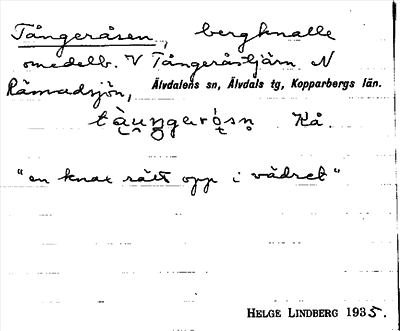 Tångeråsen, bergknalle
omedelb. V Tångeråstjärn N
Rämadsjön, Älvdalens sn, Älvdals tg, Kopparbergs län.
Kå.
"en knax rätt opp i vädret"
HELGE LINDBERG 1935.